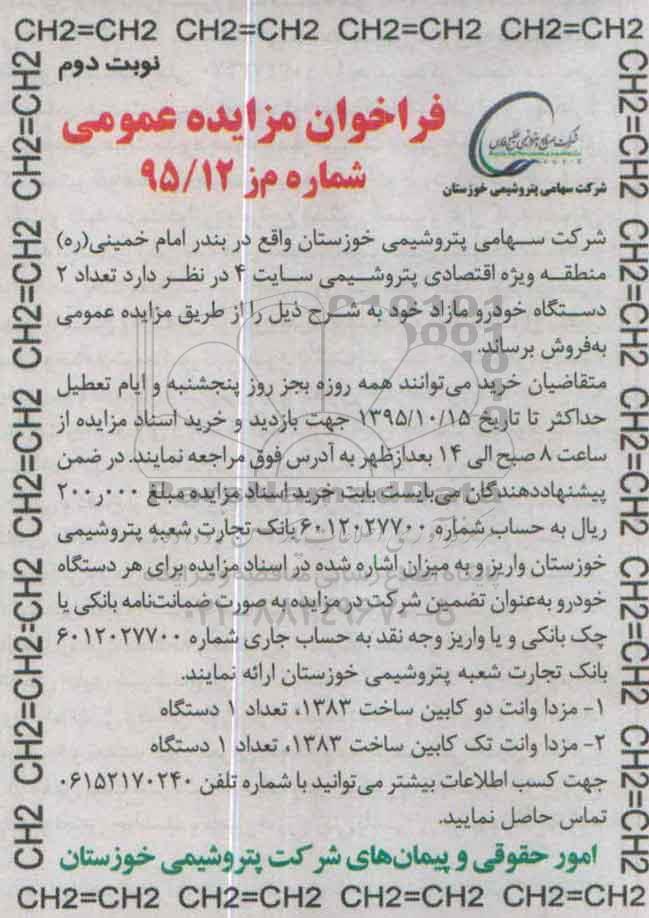 CH2=CH2 CH2=CH2 CH2=CH2 CH2=CH2
نوبت دوم
فراخوان مزایده عمومی
شماره مز ۹۵/۱۲
شرکت سهامی پتروشیمی خوزستان
شرکت سـهامی پتروشیمی خوزستان واقع در بندر امام خمینی(ره)
منطقـه ویژه اقتصادی پتروشـیمی سـایت ۴ در نظـر دارد تعداد ۲
دسـتگاه خودرو مازاد خود به شـرح ذیل را از طریق مزایده عمومی
به‌فروش برساند.
متقاضیان خرید می‌توانند همه روزه بجز روز پنجشنبه و ایام تعطیل
حداکثر تا تاریخ ۱۳۹۵/۱۰/۱۵ جهت بازدید و خرید اسناد مزایده از
ساعت ۸ صبح الی ۱۴ بعدازظهر به آدرس فوق مراجعه نمایند. در ضمن
پیشنهاددهندگان می‌بایست بابت خرید اسناد مزایده مبلغ ۲۰۰ر۰۰۰
ریال به حساب شماره ۶۰۱۲۰۲۷۷۰۰ بانک تجارت شعبه پتروشیمی
خوزستان واریز و به میزان اشاره شده در اسناد مزایده برای هر دستگاه
خودرو به‌عنوان تضمین شرکت در مزایده به صورت ضمانت‌نامه بانکی یا
چک بانکی و یا واریز وجه نقد به حساب جاری شماره ۶۰۱۲۰۲۷۷۰۰
بانک تجارت شعبه پتروشیمی خوزستان ارائه نمایند.
۱- مزدا وانت دو کابین ساخت ۱۳۸۳، تعداد ۱ دستگاه
۲- مزدا وانت تک کابین ساخت ۱۳۸۳، تعداد ۱ دستگاه
جهت کسب اطلاعات بیشتر می‌توانید با شماره تلفن ۰۶۱۵۲۱۷۰۲۴۰
تماس حاصل نمایید.
امور حقوقی و پیمان‌های شرکت پتروشیمی خوزستان
CH2=CH2 CH2=CH2 CH2=CH2 CH2=CH2
CH2 CH2=CH2=CH2 CH2=CH2 CH2=CH2 CH2=CH2
CH2=CH2 CH2=CH2 CH2=CH2 CH2=CH2 CH2=CH2